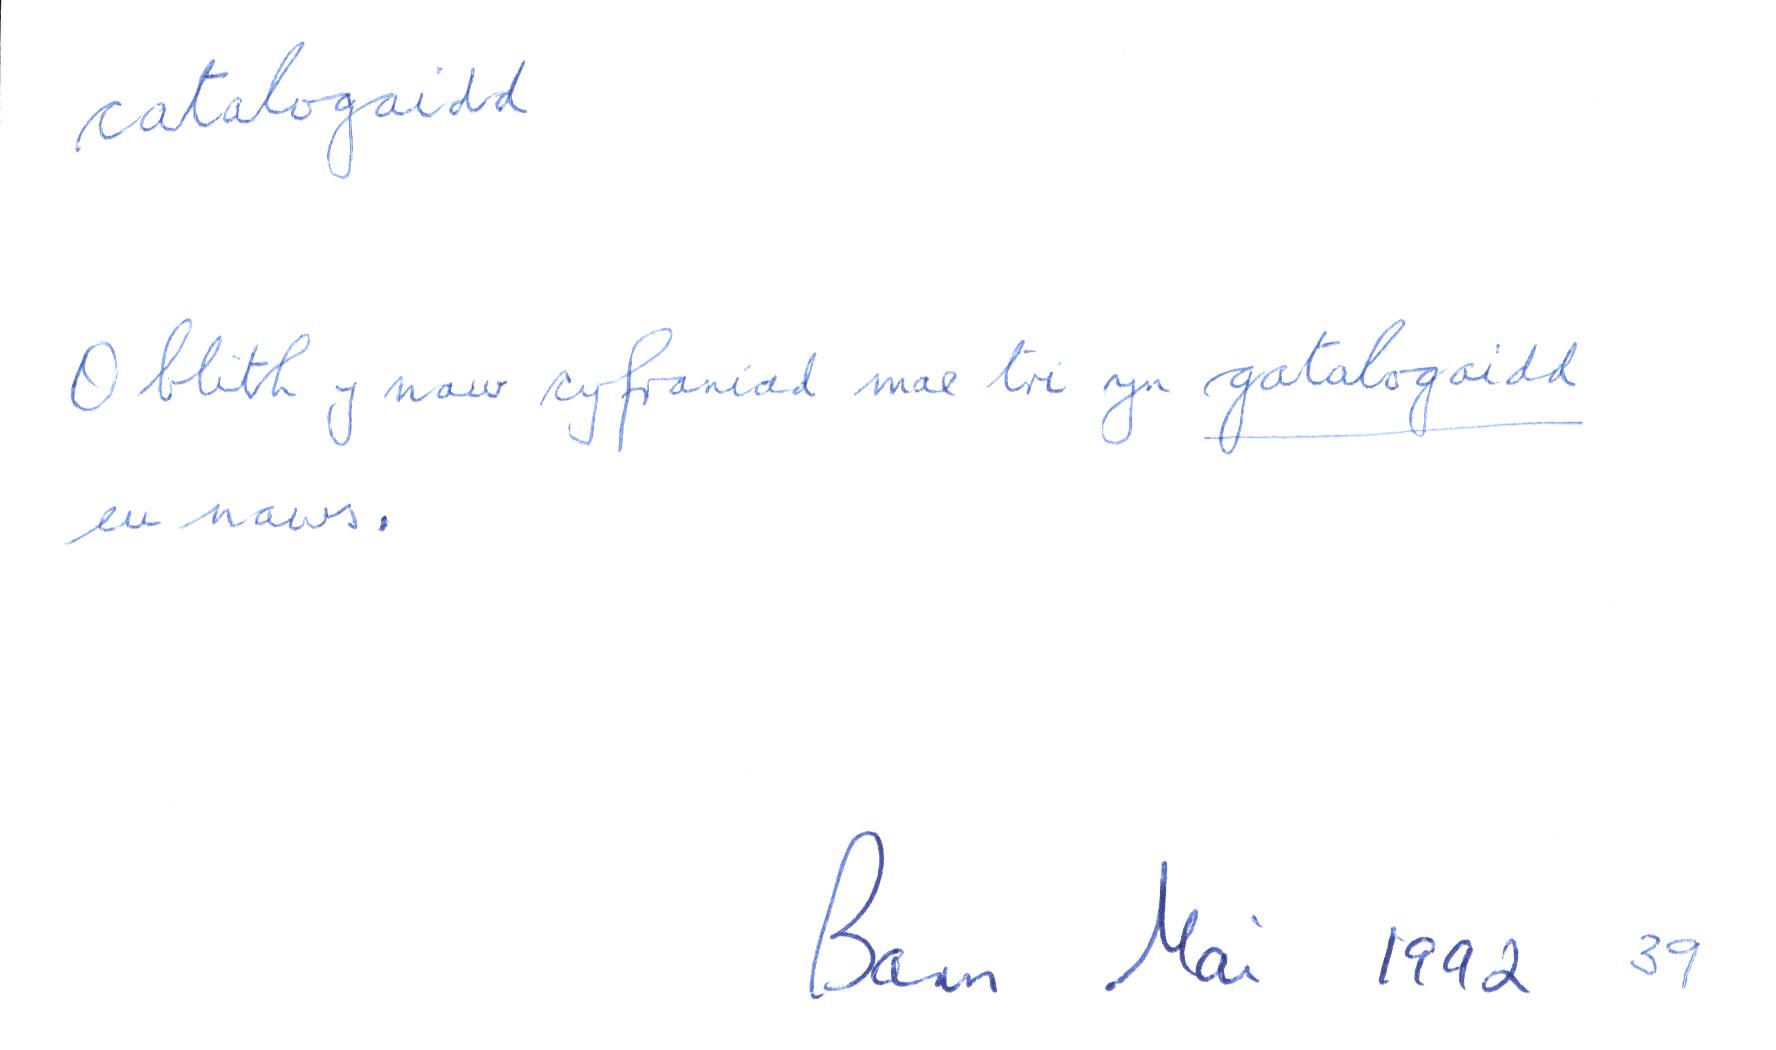 catalogaidd
O blith y naw cyfraniad mae tri yn gatalogaidd
eu naws.
Barn Mai 1992 39